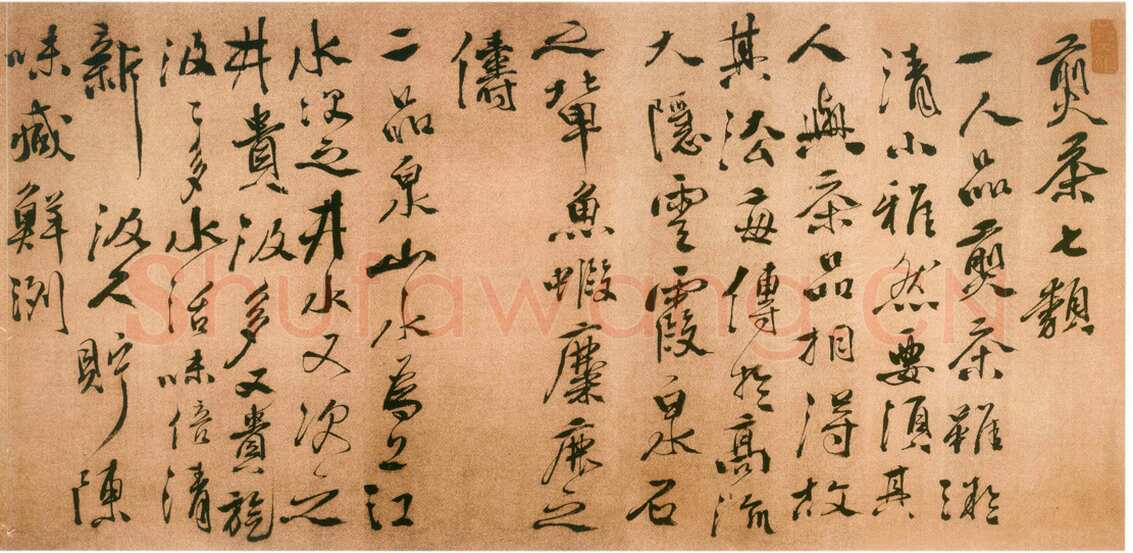 煎茶七類
一人品煎茶雖凝
清小雅然要須其
人與茶品相得故
其法每傳於高流
大隱雲霞泉石
之輩魚蝦麋鹿之
儔
二品泉山水為上江
水次之井水又次之
井貴汲多又貴旋
汲〻多水活味倍清
新汲久貯陳
味減鮮洌
Shufawang.CN